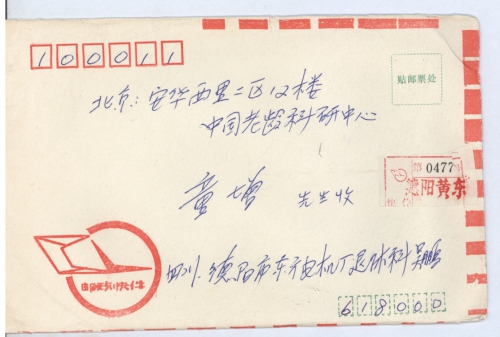 100011
贴邮票处
北京:安华西里二区12楼
中国老龄科研中心
0477
德阳黄东
童增 先生收
邮政快件
四川德阳市东方电机厂足球科吴鹏
618000